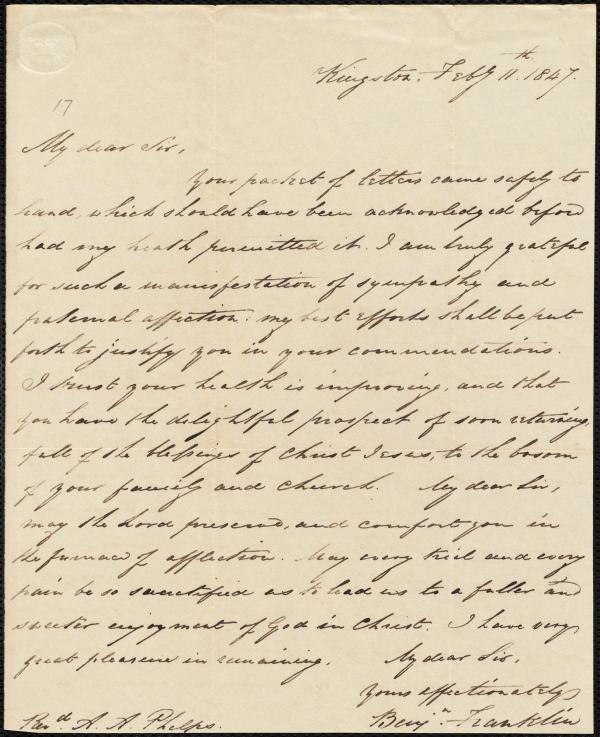 Kingston, Feby 11th. 1847.
17
My dear Sir,
your packet of letters came safely to
hand, which should have been acknowledged before
had my heath permitted it. I am truly grateful
for such a manifestation of sympathy and
fraternal affection: my best efforts shall be put
forth to justify you in your commendations.
I trust your health is improving, and that
you have the delightful prospect of soon returning,
full of the blessings of Christ Jesus, to the bosom
of your family and church. My dear Sir,
may the Lord preserve, and comfort you in
the furnace of affliction. May every trial and every
pain be so sanctified as to lead us to a fuller and
sweeter enjoyment of God in Christ. I have very
great pleasure in remaining, My dear Sir,
yours affectionately
Benjn. Franklin
Revd. A. A. Phelps.